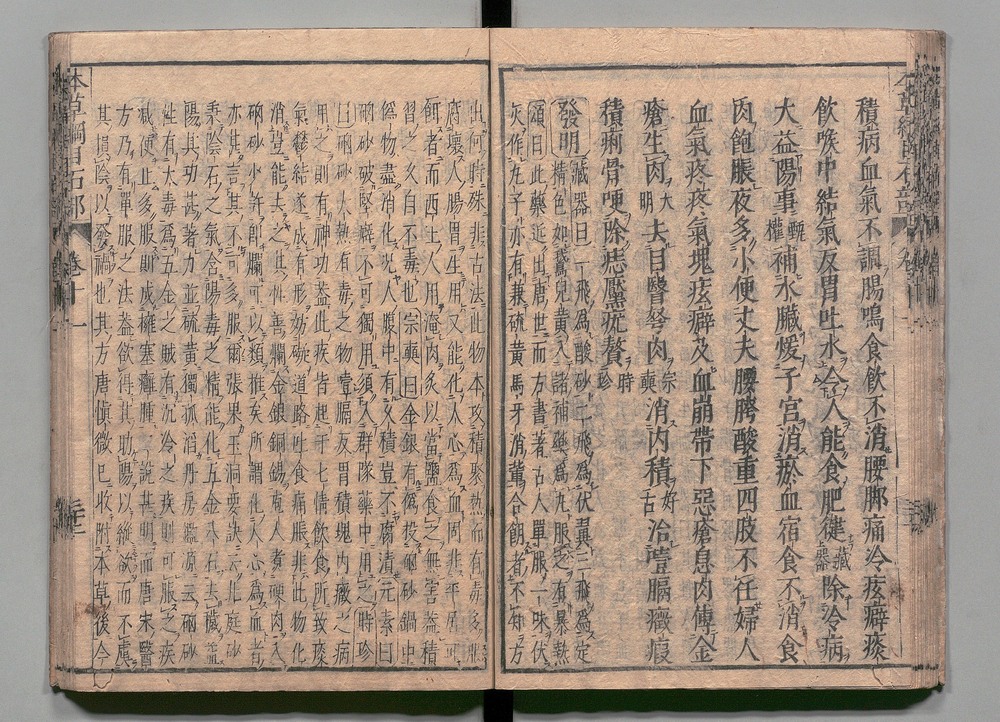 積病血氣不調腸鳴食飲不消腰脚痛冷痃癖痰
飲喉中結氣反胃吐水令人能食肥健藏器除冷病
大益陽事甄權補水臟煖子宮消瘀血宿食不消食
肉飽脹夜多小便丈夫腰胯酸重四肢不任婦人
血氣疼疼氣塊痃癖及血崩帶下惡瘡息肉傅金
瘡生肉大明去目瞖弩肉宗奭消內積好古治噎膈癥瘕
積痢骨哽除痣黶疣贅時珍
發明藏器曰一飛為酸砂二飛為伏翼三飛為定
精色如鵞兒黃入諸補藥為丸服之有暴熱
頌曰此藥近出唐世而方書著古人單服一味伏
火作丸子亦有兼硫黃馬牙消輩合餌者不知方
出何時殊非古法此物本攻積聚熱而有毒多服
腐壞人腸胃生用又能化人心為血固非平居可
餌者而西土人用淹肉炙以當鹽食之無害蓋積
習之久自不毒也宗奭曰金銀有偽投硇砂鍋中
偽物盡消化况人腹中有久積豈不腐潰元素曰
硇砂破堅癖不可獨用須入群隊藥中用之時珍
曰硇砂大熱有毒之物噎膈反胃積塊內癥之病
用之則有神功蓋此疾皆起于七情飲食所致痰
氣鬱結遂成有形妨碍道路吐食痛脹非此物化
消豈能去之其性善爛金銀銅錫庖人煮硬肉入
硇砂少許即爛可以類推矣所謂化人心為血者
亦甚言其不可多服爾張果玉洞要訣云北庭砂
秉陰石之氣含陽毒之精能化五金八石去穢益
陽其功甚著力並硫黃獨孤滔丹房鑑源云硇砂
性有大毒為五金之賊有沉冷之疾則可服之疾
減便止多服則成擁塞癰腫二說甚明而唐宋醫
方乃有單服之法蓋欲得其助陽以縱欲而不虞
其損陰以發禍也其方唐愼微已收附本草後今
本草綱目石部 卷十一